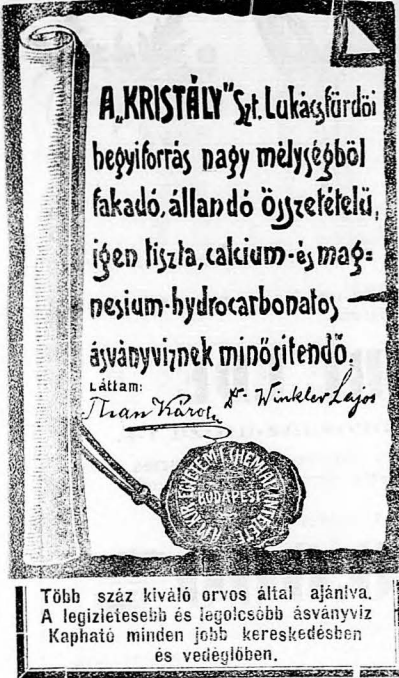 A „KRISTÁLY” Szt. Lukácsfürdöi
hegyiforrás nagy mélységböl
fakadó, állandó összetételü,
igen tiszta, calcium- és mag=
nesium-hydrocarbonatos
ásványviznek minösitendö.
Láttam:
Than Károly Dr. Winkler Lajos
BUDAPEST
Több száz kiváló orvos által ajánlva.
A legizletesebb és legolcsóbb ásványviz
Kapható minden jobb kereskedésben
és vedéglöben.